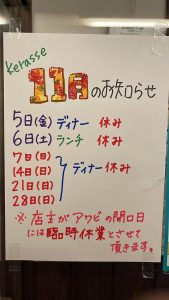 Kerasse
11月のお知らせ
5日(金) ディナー 休み
6日(土) ランチ 休み
7日(日)
14日(日) ディナー休み
21日(日)
28日(日)
※店主がアワビの開口日
には臨時休業とさせて
頂きます。